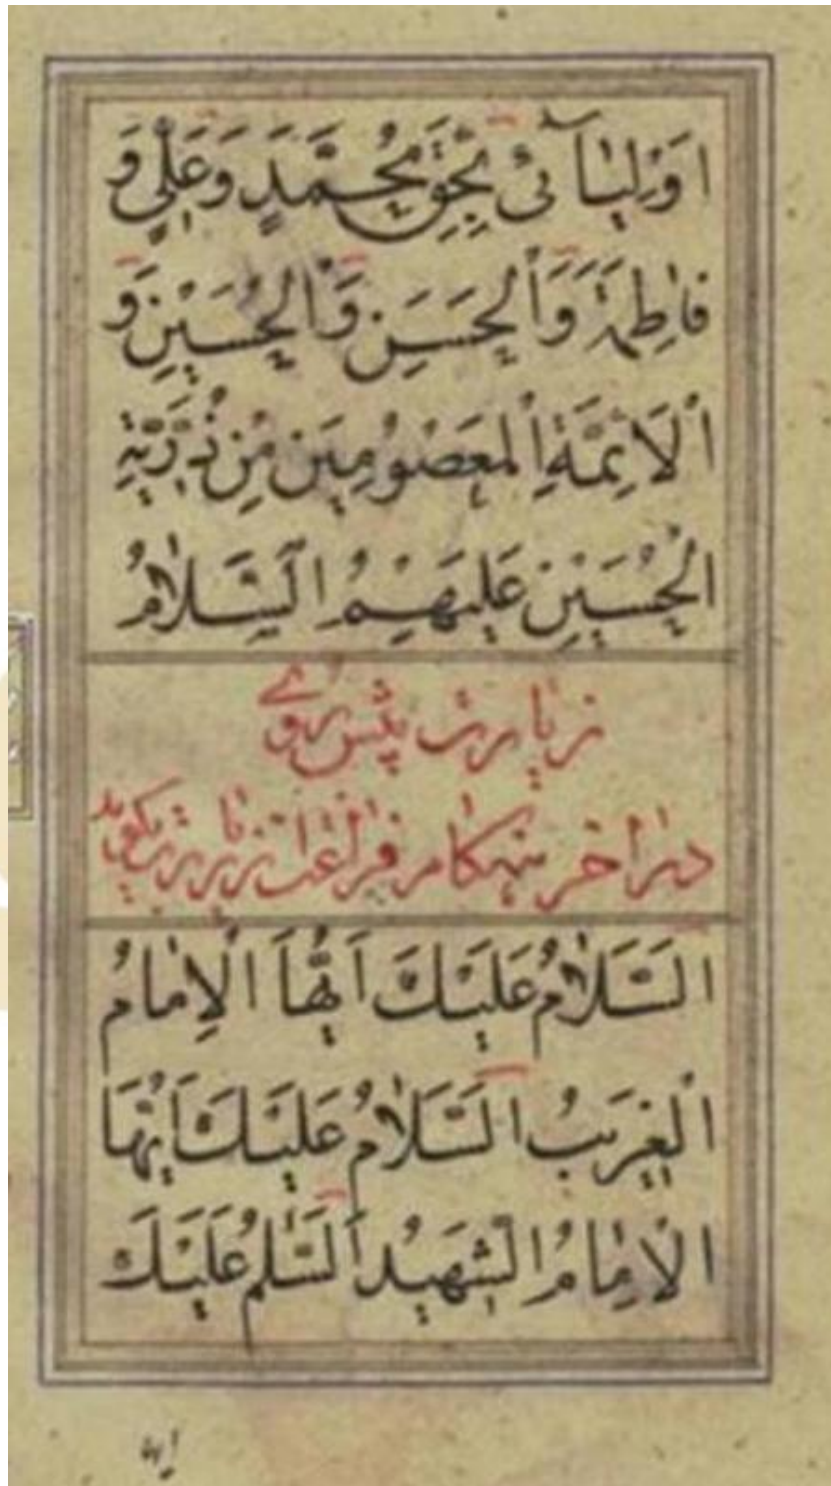 اَوْلِيٰآئى بِحَقِّ مُحَمَّدٍ وَعَلِىٍّ وَ
فاطِمَةَ وَاَلْحَسَنِ وَاَلْحُسَيْنِ وَ
اْلاَئِمَّةِ اْلمَعصُومِينَ مِن ذُرِّيَّةِ
الْحُسَيْنِ عَلَيهِمُ السَّلاٰمُ
زيارت پيش روے
در اخر هنكام فراغت از زيارت بكويد
اَلسَّلاٰمُ عَلَيْكَ اَيُّهاَ الْاِمٰامُ
الْغَرِيبُ السَّلاٰمُ عَلَيْكَ اَيُّهَا
الْاِمٰامُ الشَّهيدُ اَلسَّلٰمُ عَلَيْكَ
ايها